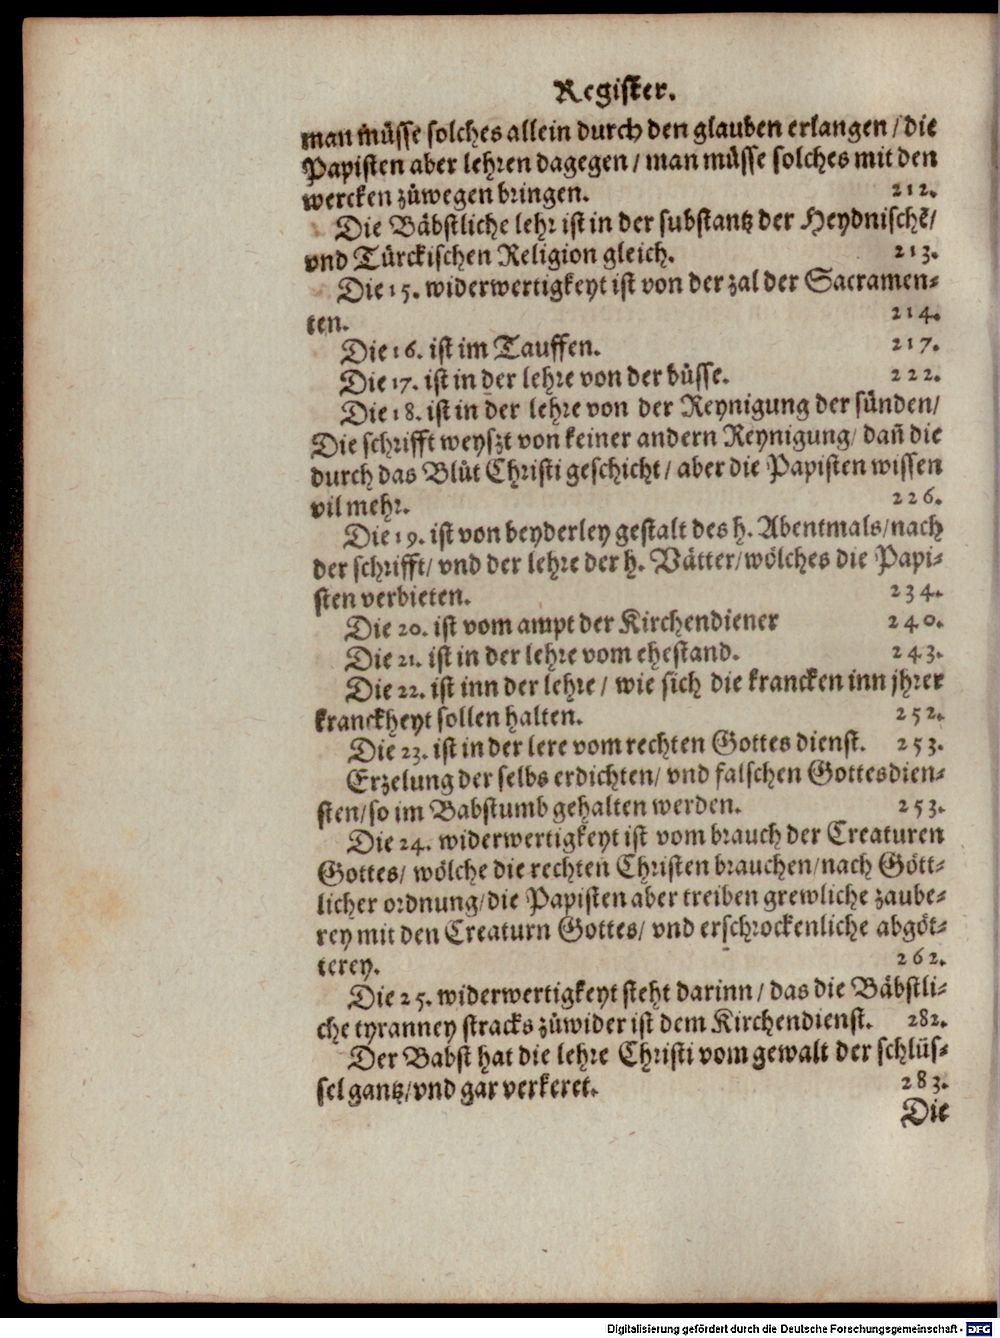 Register.
man müsse solches allein durch den glauben erlangen / die
Papisten aber lehren dagegen / man müsse solches mit den
wercken zůwegen bringen. 212.
Die Bäbstliche lehr ist in der substantz der Heydnischē/
vnd Türckischen Religion gleich. 213.
Die 15. widerwertigkeyt ist von der zal der Sacramen-
ten. 214.
Die 16. ist im Tauffen. 217.
Die 17. ist in der lehre von der bůsse. 222.
Die 18. ist in der lehre von der Reynigung der sünden/
Die schrifft weyszt von keiner andern Reynigung/ dañ die
durch das Blůt Christi geschicht / aber die Papisten wissen
vil mehr. 226.
Die 19. ist von beyderley gestalt des h. Abentmals/nach
der schrifft/ vnd der lehre der h. Vätter/wölches die Papi-
sten verbieten. 234.
Die 20. ist vom ampt der Kirchendiener 240.
Die 21. ist in der lehre vom ehestand. 243.
Die 22. ist inn der lehre / wie sich die krancken inn jhrer
kranckheyt sollen halten. 252.
Die 23. ist in der lere vom rechten Gottes dienst. 253.
Erzelung der selbs erdichten/ vnd falschen Gottesdien-
sten/so im Babstumb gehalten werden. 253.
Die 24. widerwertigkeyt ist vom brauch der Creaturen
Gottes/ wölche die rechten Christen brauchen/nach Gött-
licher ordnung/die Papisten aber treiben grewliche zaube-
rey mit den Creaturn Gottes/ vnd erschrockenliche abgöt-
terey. 262.
Die 25. widerwertigkeyt steht darinn / das die Bäbstli-
che tyranney stracks zůwider ist dem Kirchendienst. 282.
Der Babst hat die lehre Christi vom gewalt der schlüs-
sel gantz/vnd gar verkeret. 283.
Die
Digitalisierung gefördert durch die Deutsche Forschungsgemeinschaft - DFG